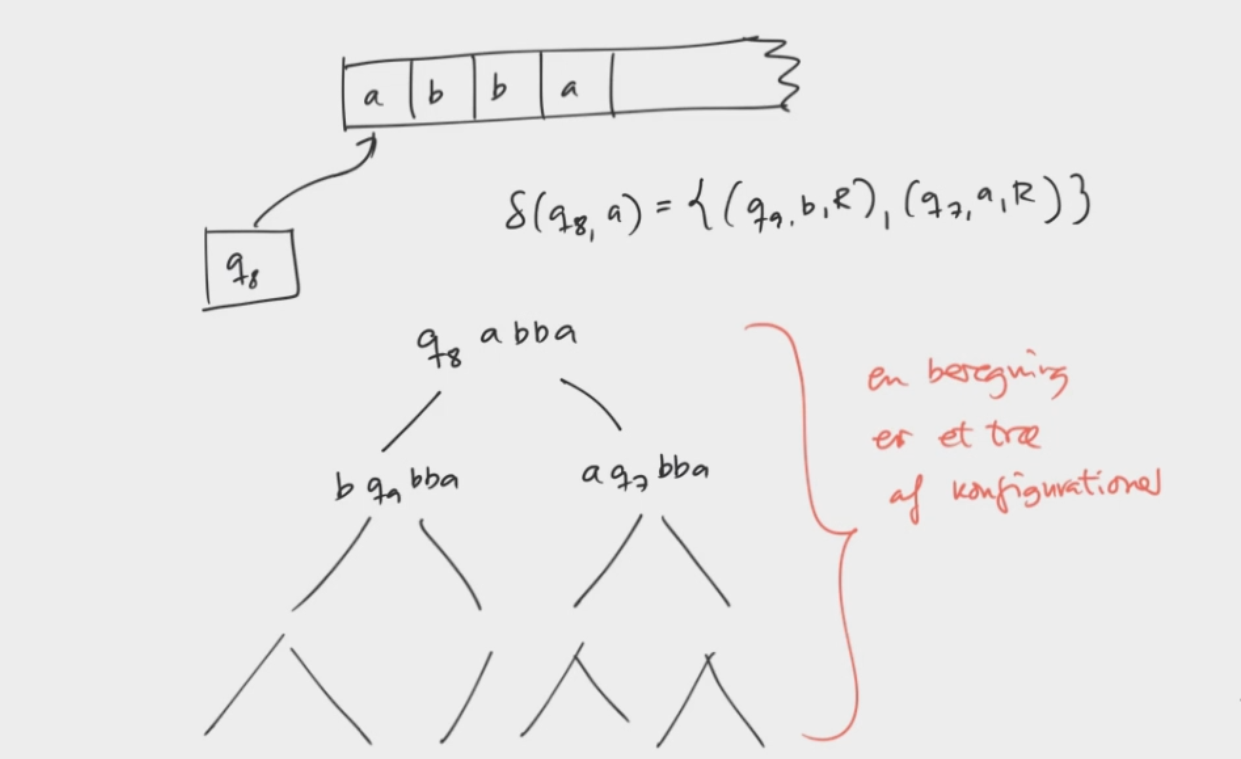 a b b a
δ(q₈, a) = {(q₉, b, R), (q₇, a, R)}
q₈
q₈ abba
b q₉ bba
a q₇ bba
en beregning
er et træ
af konfigurationer